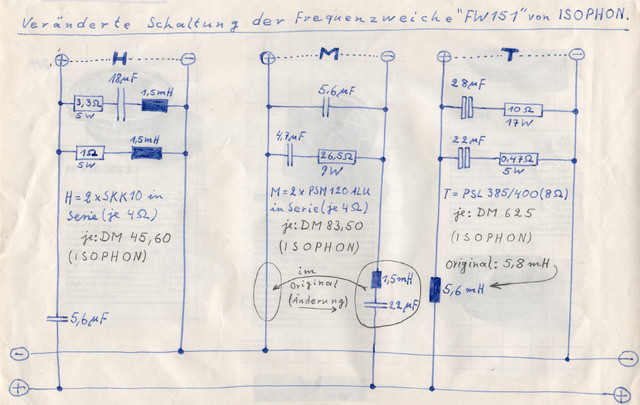 Veränderte Schaltung der Frequenzweiche "FW151" von ISOPHON.
⊕ H ⊖
18µF
1,5mH
3,3Ω
5W
1,5mH
1Ω
5W
H = 2 x SKK10 in
Serie (je 4Ω)
je: DM 45,60
(ISOPHON)
5,6µF
⊕ M ⊖
5,6µF
4,7µF
26,5Ω
9W
M = 2 x PSM 120 ALU
in Serie (je 4Ω)
je: DM 83,50
(ISOPHON)
im
Original
(Änderung)
1,5mH
22µF
⊕ T ⊖
28µF
10Ω
17W
22µF
0,47Ω
5W
T = PSL 385/400 (8Ω)
je: DM 625
(ISOPHON)
Original: 5,8 mH
5,6 mH
⊖ ⊖
⊕ ⊕